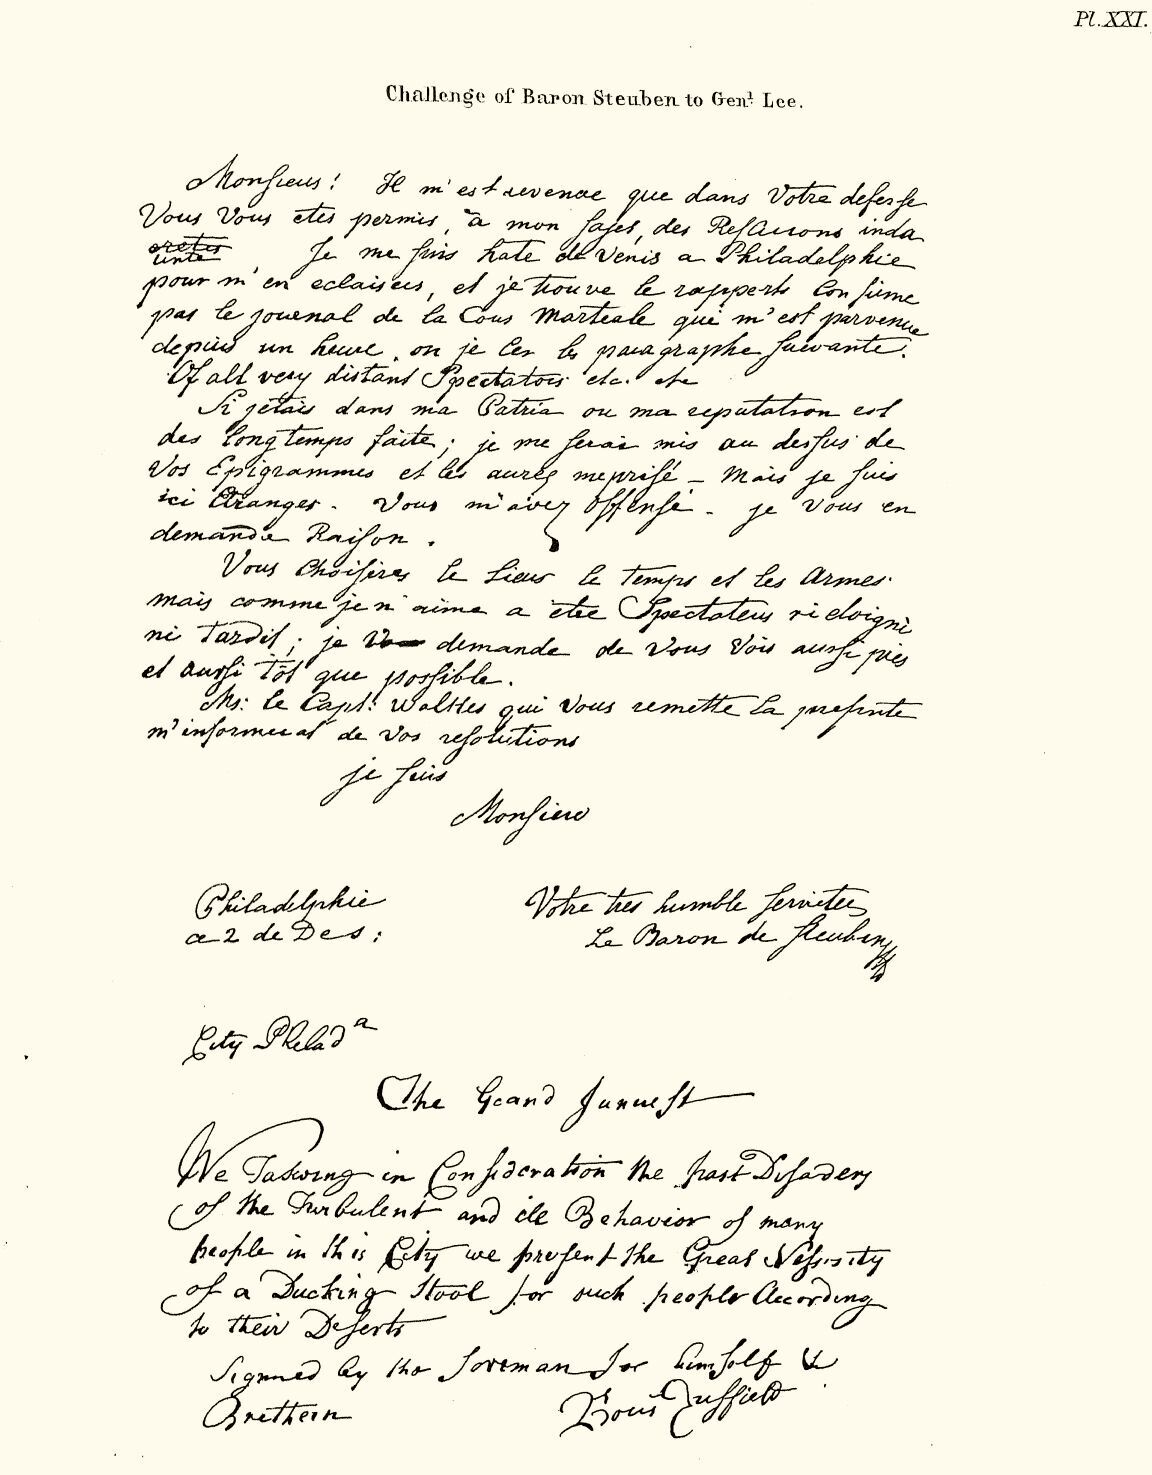 Pl. XXI.
Challenge of Baron Steuben to Genl. Lee.
Monsieur! Il m'est revenue que dans Votre defense
Vous Vous etes permis, a mon sujet, des Reflexions inda
Je me suis hate de Venir a Philadelphie
pour m'en eclaircir, et je trouve le rapports Confirme
par le journal de la Cour Martiale qui m'est parvenue
depuis un heure, ou je les le paragraphe suivante.
Of all very distant Spectators etc. etc
Si jetais dans ma Patria ou ma reputation est
des longtemps faite; je me serais mis au dessus de
Vos Epigrammes et les aures meprisé – Mais je suis
ici Etranger. Vous m'avez Offensé. je Vous en
demande Raison.
Vous Choisires le Lieur le Temps et les Armes.
mais comme je n'aime a etre Spectateur ni eloigné
ni Tardif; je demande de Vous Voir aussi pres
et aussi Tôt que possible.
Ms: le Capt: Walkes qui Vous remette La presente
m'informerat de Vos resolutions
je suis
Monsieur
Philadelphie
a 2 de Des:
Votre tres humble serviteur
Le Baron de Steuben
City Philada
The Grand Junuest
We Taskeing in Consideration the past Disorders
of the Turbulent and ile Behavior of many
people in this City we present the Great Nessisity
of a Ducking Stool for such people According
to their Deserts
Signned by the foreman for himself &
Brethern
Duffield